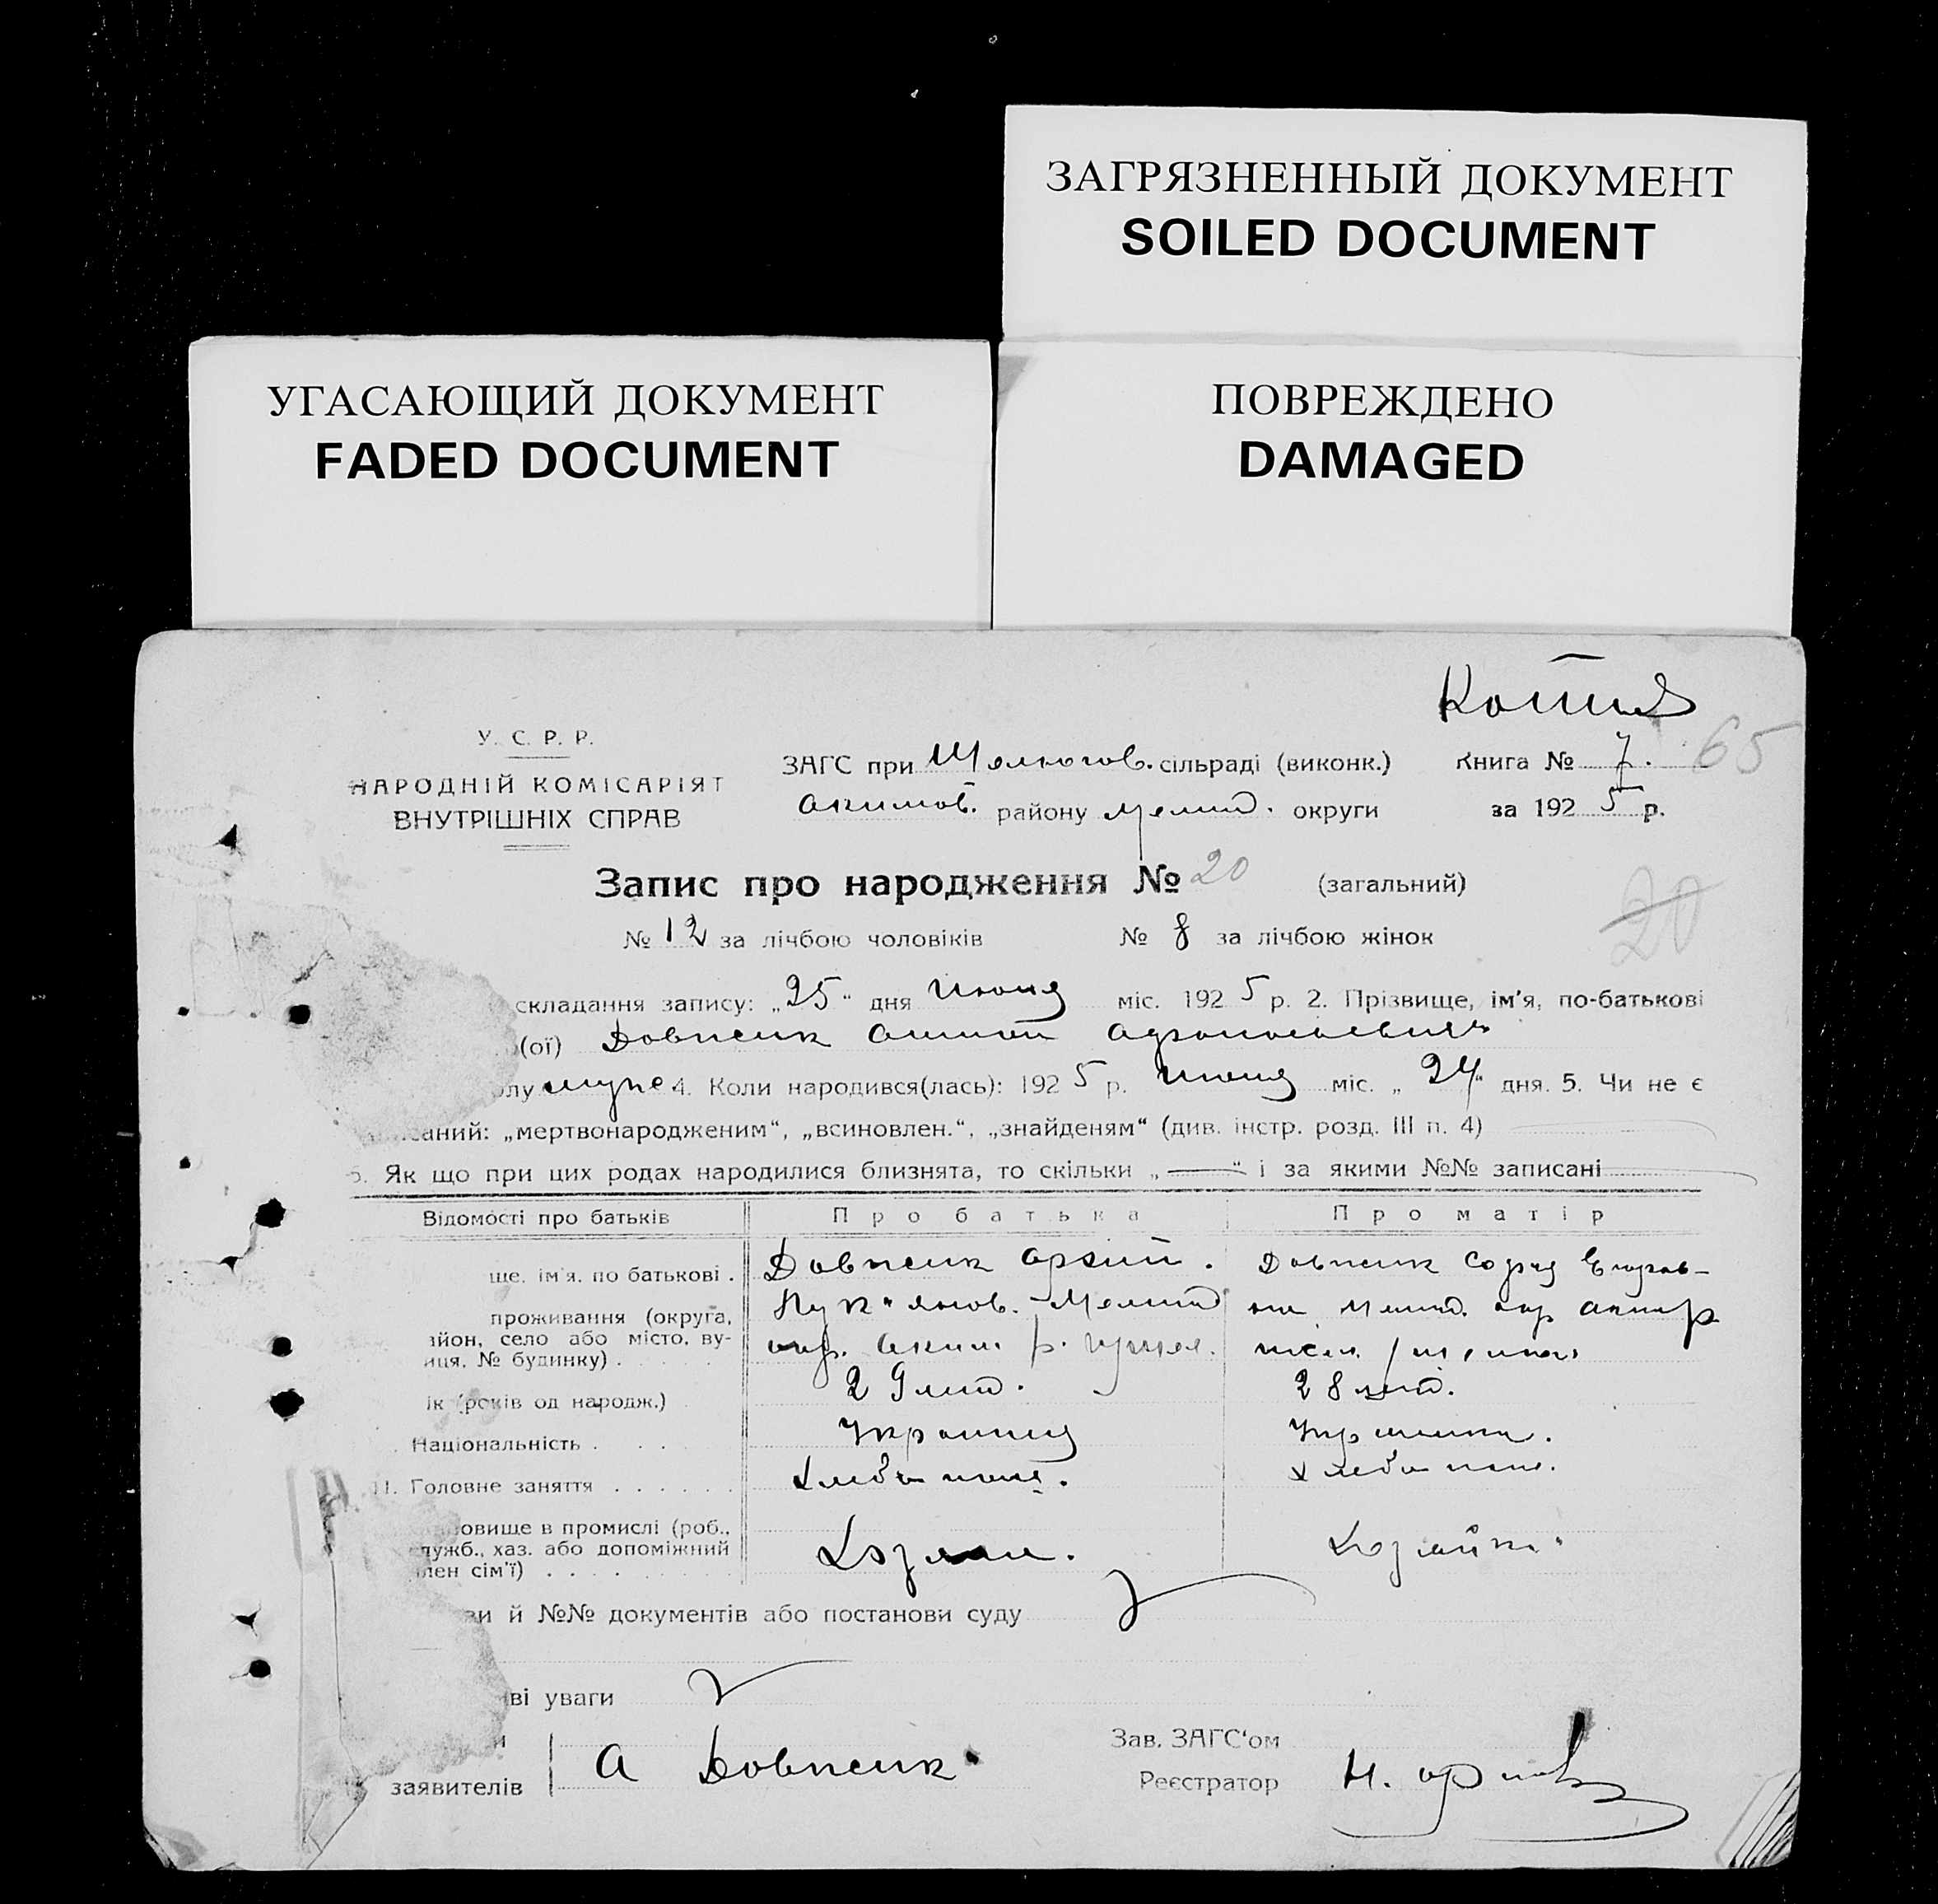 ЗАГРЯЗНЕННЫЙ ДОКУМЕНТ
SOILED DOCUMENT
УГАСАЮЩИЙ ДОКУМЕНТ
FADED DOCUMENT
ПОВРЕЖДЕНО
DAMAGED
Копия
У. С. Р. Р.
НАРОДНІЙ КОМІСАРІЯТ
ВНУТРІШНІХ СПРАВ
ЗАГС при Шелюгов. сільраді (виконк.) Книга № 7. 65
Акимов. району Мелит. округи за 1925 р.
Запис про народження № 20 (загальний)
20
№ 12 за лічбою чоловіків № 8 за лічбою жінок
складання запису: „25“ дня июня міс. 1925 р. 2. Прізвище, ім'я, по-батькові
(ої) Довпенк
олу муже 4. Коли народився(лась): 1925 р. июня міс. „24“ дня. 5. Чи не є
саний: „мертвонародженим“, „всиновлен.“, „знайденям“ (див. інстр. розд. III п. 4)
6. Як що при цих родах народилися близнята, то скільки „—“ і за якими №№ записані
Відомості про батьків Про батька Про матір
ще, ім'я, по батькові . Довпенк Довпенк
проживання (округа, Мелит
айон, село або місто, ву- окр. Аким р.
иця, № будинку) .
ік (років од народж.) 29 лет. 28 лет.
Національність . . . Украинец Украинка.
11. Головне заняття . . . . . . Хлебопаш. Хлебопаш.
новище в промислі (роб.,
служб., хаз. або допоміжний Хозяин. Хозяйка.
член сім'ї) . . . . . . . .
ви й №№ документів або постанови суду
ві уваги
и
заявителів А Довпенк
Зав. ЗАГС'ом
Реєстратор Н.